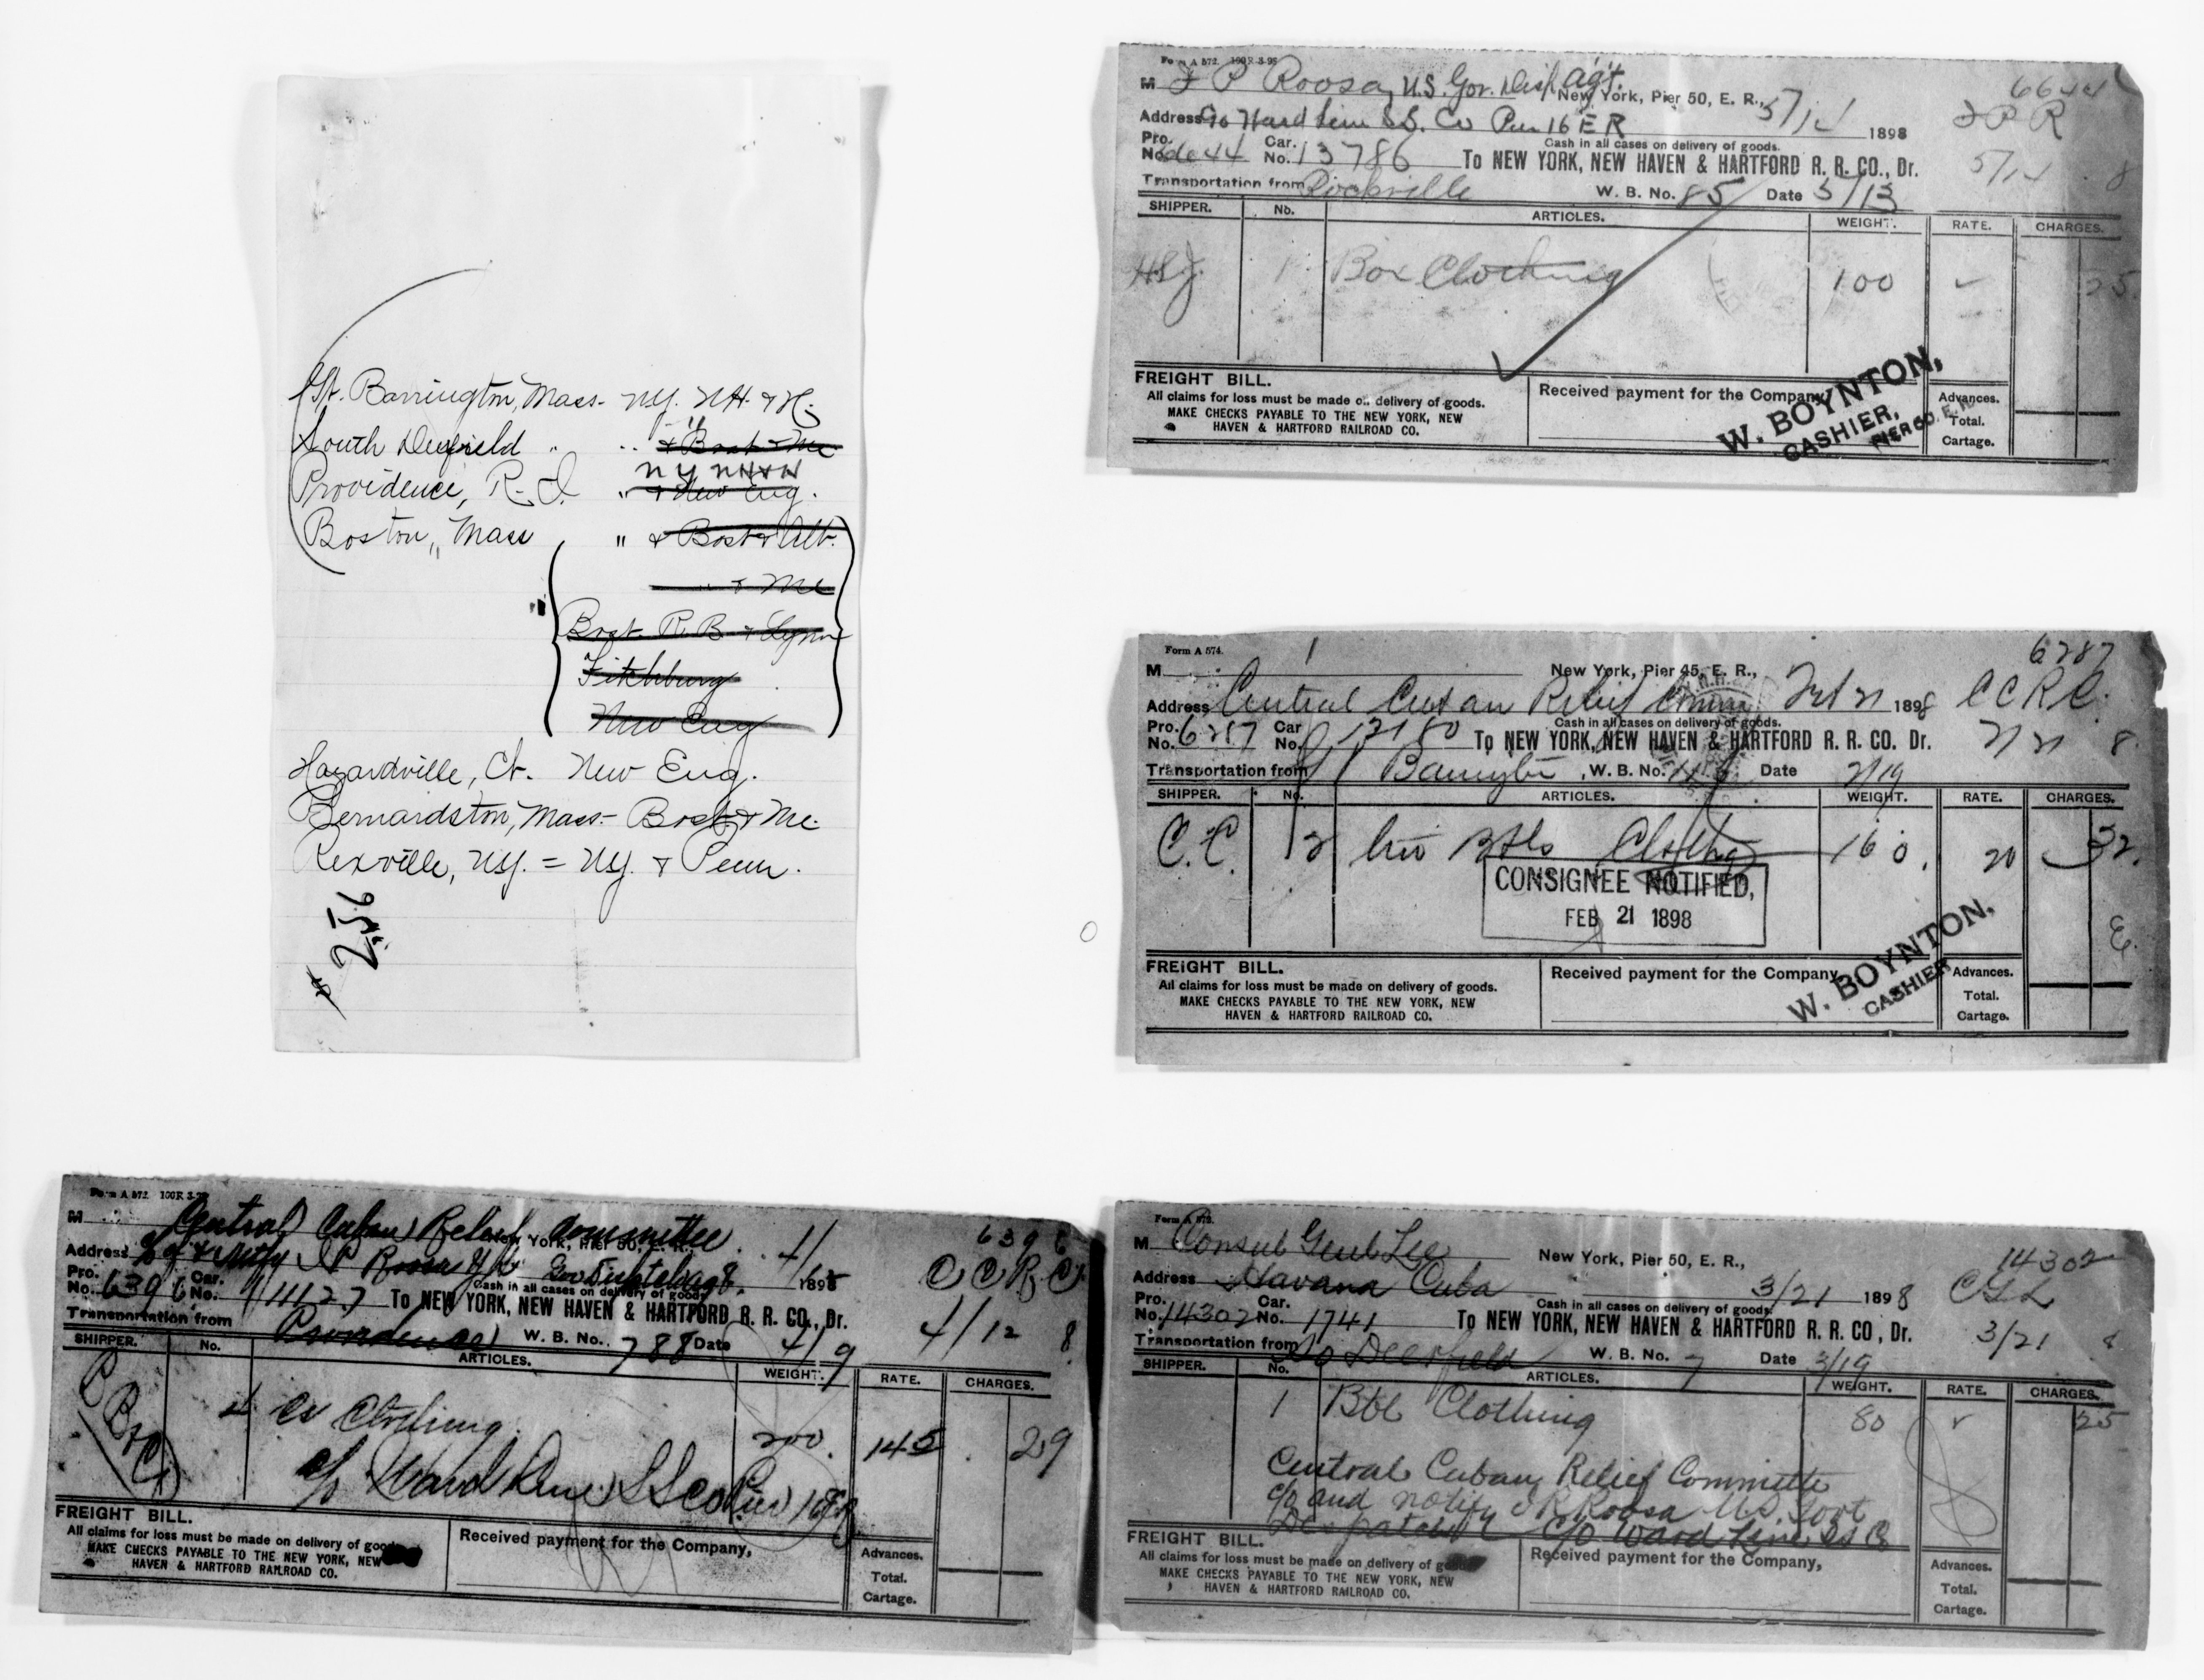 Gt. Barrington, Mass. - N.Y. N.H. & H.
South Deerfield " " " & Bost & Me
N Y N H & H
Providence, R.I. " & New Eng.
Boston, Mass " & Bost & Alb.
" & Me
Bost R. B & Lynn
Fitchburg
New Eng
Hazardville, Ct. New Eng.
Bernardston, Mass - Bost & Me.
Rexville, N.Y. = N.Y. & Penn.
# 256
Form A 572. 100 R 3-98
M F P Roosa, U.S. Gov. Disp Agt. 6644
New York, Pier 50, E. R., 5/14 1898 F P R
Address c/o Ward Line S.S. Co Pier 16 E R
Cash in all cases on delivery of goods.
Pro. No. 6644 Car. No. 13786 To NEW YORK, NEW HAVEN & HARTFORD R. R. CO., Dr. 5/14 8
Transportation from Rockville W. B. No. 85 Date 5/13
SHIPPER. No. ARTICLES. WEIGHT. RATE. CHARGES.
1 Box Clothing 100 25
FREIGHT BILL.
All claims for loss must be made on delivery of goods.
MAKE CHECKS PAYABLE TO THE NEW YORK, NEW
HAVEN & HARTFORD RAILROAD CO.
Received payment for the Company,
W. BOYNTON,
CASHIER,
PIER 50, E. R.
Advances.
Total.
Cartage.
Form A 574. 6287
M New York, Pier 45, E. R.,
Address Central Cuban Relief Comm. Feb 21 1898 C C R C.
Cash in all cases on delivery of goods.
Pro. No. 6287 Car No. 12180 To NEW YORK, NEW HAVEN & HARTFORD R. R. CO. Dr. 2/21 8.
Transportation from Gt Barrington, W. B. No. Date 2/19
SHIPPER. No. ARTICLES. WEIGHT. RATE. CHARGES.
C. C. 2 two Bbls Clothing 160. 20 32.
CONSIGNEE NOTIFIED,
FEB 21 1898
FREIGHT BILL.
All claims for loss must be made on delivery of goods.
MAKE CHECKS PAYABLE TO THE NEW YORK, NEW
HAVEN & HARTFORD RAILROAD CO.
Received payment for the Company
W. BOYNTON.
CASHIER
Advances.
Total.
Cartage.
Form A 572. 100R 3-98
M Central Cuban Relief Committee 6396
New York, Pier 50, E. R.,
Address c/o & Notify F P Roosa U S Gov Dispatch Agt. 4/ 1898 C C R C
Cash in all cases on delivery of goods.
Pro. No. 6396 Car. No. 11127 To NEW YORK, NEW HAVEN & HARTFORD R. R. CO., Dr. 4/12 8
Transportation from Providence W. B. No. 788 Date 4/9
SHIPPER. No. ARTICLES. WEIGHT. RATE. CHARGES.
4 Cs Clothing 200. 145 29
c/o Ward Line S S Co Pier 16 ER
FREIGHT BILL.
All claims for loss must be made on delivery of goods
MAKE CHECKS PAYABLE TO THE NEW YORK, NEW
HAVEN & HARTFORD RAILROAD CO.
Received payment for the Company,
Advances.
Total.
Cartage.
Form A 572.
M Consul Genl Lee New York, Pier 50, E. R., 14302
Address Havana Cuba 3/21 1898 C G L
Cash in all cases on delivery of goods.
Pro. No. 14302 Car. No. 1741 To NEW YORK, NEW HAVEN & HARTFORD R. R. CO, Dr. 3/21 8
Transportation from So Deerfield W. B. No. 7 Date 3/19
SHIPPER. No. ARTICLES. WEIGHT. RATE. CHARGES.
1 Bbl Clothing 80 25
Central Cuban Relief Committe
c/o and notify F P Roosa U.S. Govt
Despatch c/o Ward Line SS Co
FREIGHT BILL.
All claims for loss must be made on delivery of goods
MAKE CHECKS PAYABLE TO THE NEW YORK, NEW
HAVEN & HARTFORD RAILROAD CO.
Received payment for the Company,
Advances.
Total.
Cartage.